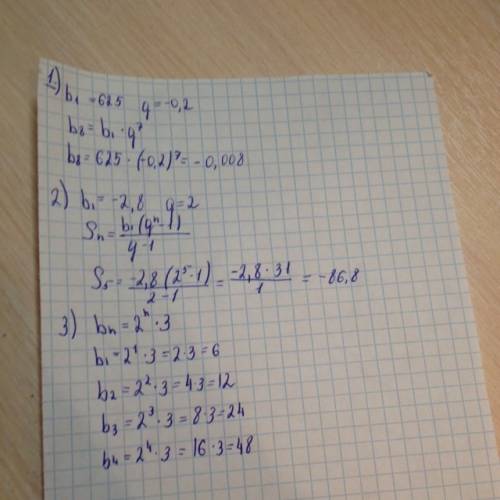 1) b₁ = 625 q = -0,2
b₈ = b₁ · q⁷
b₈ = 625 · (-0,2)⁷ = -0,008
2) b₁ = -2,8 q = 2
Sₙ = b₁(qⁿ-1) / q-1
S₅ = -2,8(2⁵-1) / 2-1 = -2,8·31 / 1 = -86,8
3) bₙ = 2ⁿ · 3
b₁ = 2¹ · 3 = 2·3 = 6
b₂ = 2² · 3 = 4·3 = 12
b₃ = 2³ · 3 = 8·3 = 24
b₄ = 2⁴ · 3 = 16·3 = 48